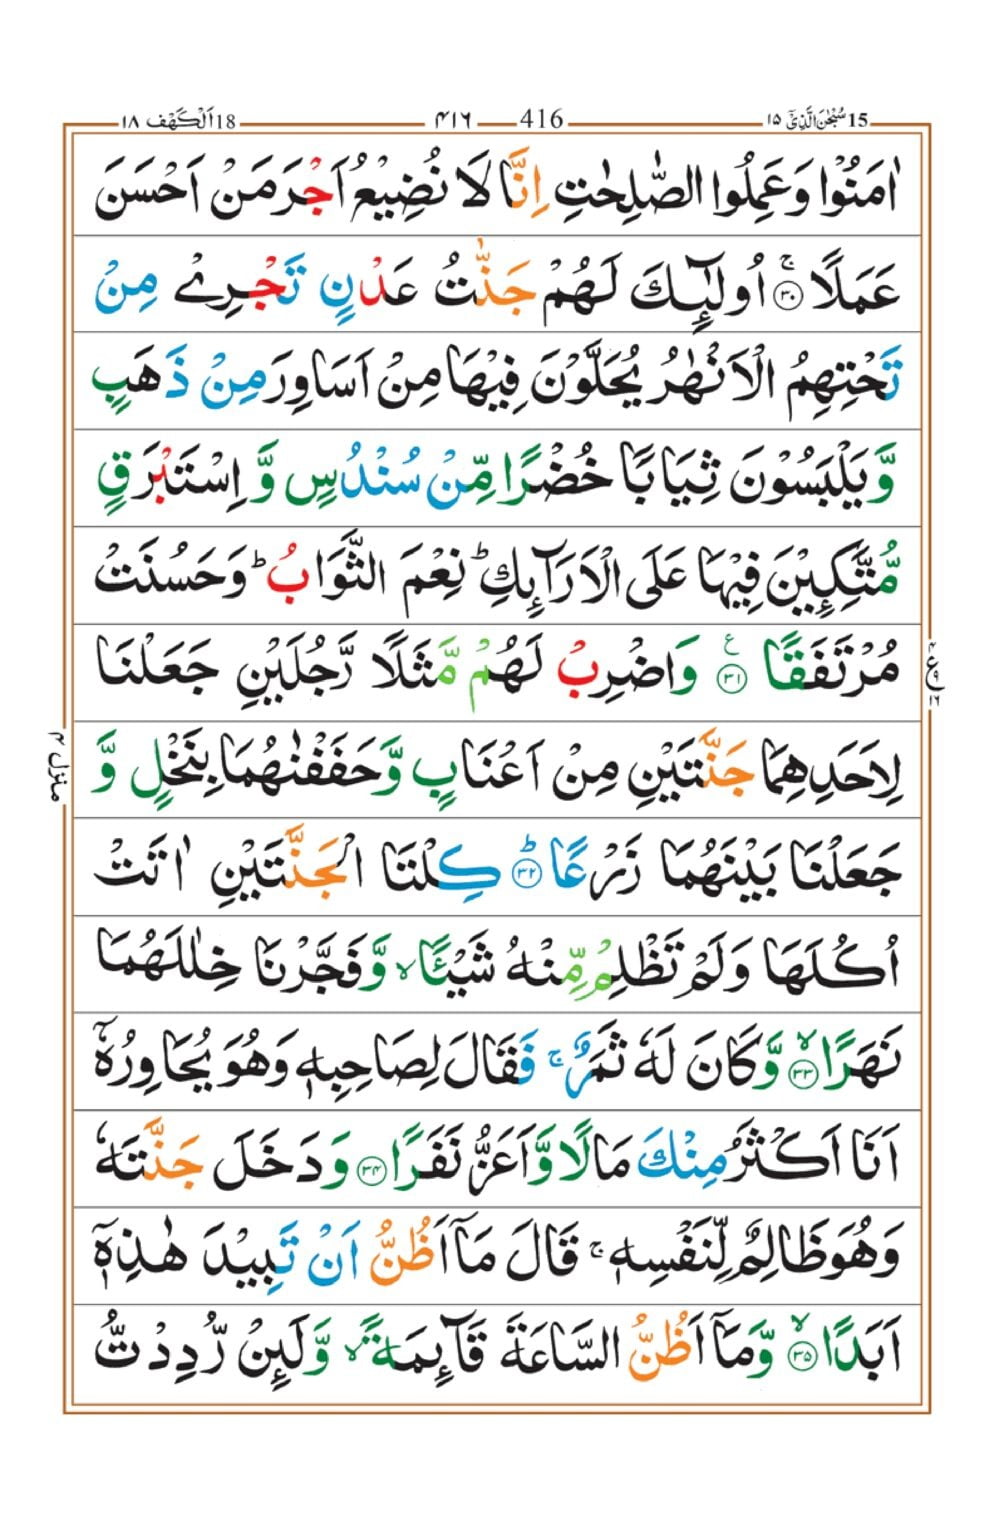 15 سُبْحٰنَ الَّذِيْۤ ١٥ 416 ٤١٦ 18 اَلْكَهْف ١٨
اٰمَنُوْا وَعَمِلُوا الصّٰلِحٰتِ اِنَّا لَا نُضِيْعُ اَجْرَ مَنْ اَحْسَنَ
عَمَلًاۚ ۝٣٠ اُولٰٓئِكَ لَهُمْ جَنّٰتُ عَدْنٍ تَجْرِيْ مِنْ
تَحْتِهِمُ الْاَنْهٰرُ يُحَلَّوْنَ فِيْهَا مِنْ اَسَاوِرَ مِنْ ذَهَبٍ
وَّيَلْبَسُوْنَ ثِيَابًا خُضْرًا مِّنْ سُنْدُسٍ وَّاِسْتَبْرَقٍ
مُّتَّكِـِٕيْنَ فِيْهَا عَلَى الْاَرَآىِٕكِؕ نِعْمَ الثَّوَابُؕ وَحَسُنَتْ
مُرْتَفَقًا ۝٣١ ع وَاضْرِبْ لَهُمْ مَّثَلًا رَّجُلَيْنِ جَعَلْنَا
ع ٤ ٩ ١٦
لِاَحَدِهِمَا جَنَّتَيْنِ مِنْ اَعْنَابٍ وَّحَفَفْنٰهُمَا بِنَخْلٍ وَّ
منزل ٤
جَعَلْنَا بَيْنَهُمَا زَرْعًاؕ ۝٣٢ كِلْتَا الْجَنَّتَيْنِ اٰتَتْ
اُكُلَهَا وَلَمْ تَظْلِمْ مِّنْهُ شَيْـًٔاۙ وَّفَجَّرْنَا خِلٰلَهُمَا
نَهَرًاۙ ۝٣٣ وَّكَانَ لَهٗ ثَمَرٌۚ فَقَالَ لِصَاحِبِهٖ وَهُوَ يُحَاوِرُهٗۤ
اَنَا اَكْثَرُ مِنْكَ مَالًا وَّاَعَزُّ نَفَرًا ۝٣٤ وَدَخَلَ جَنَّتَهٗ
وَهُوَ ظَالِمٌ لِّنَفْسِهٖۚ قَالَ مَاۤ اَظُنُّ اَنْ تَبِيْدَ هٰذِهٖۤ
اَبَدًاۙ ۝٣٥ وَّمَاۤ اَظُنُّ السَّاعَةَ قَآىِٕمَةًۙ وَّلَىِٕنْ رُّدِدْتُّ